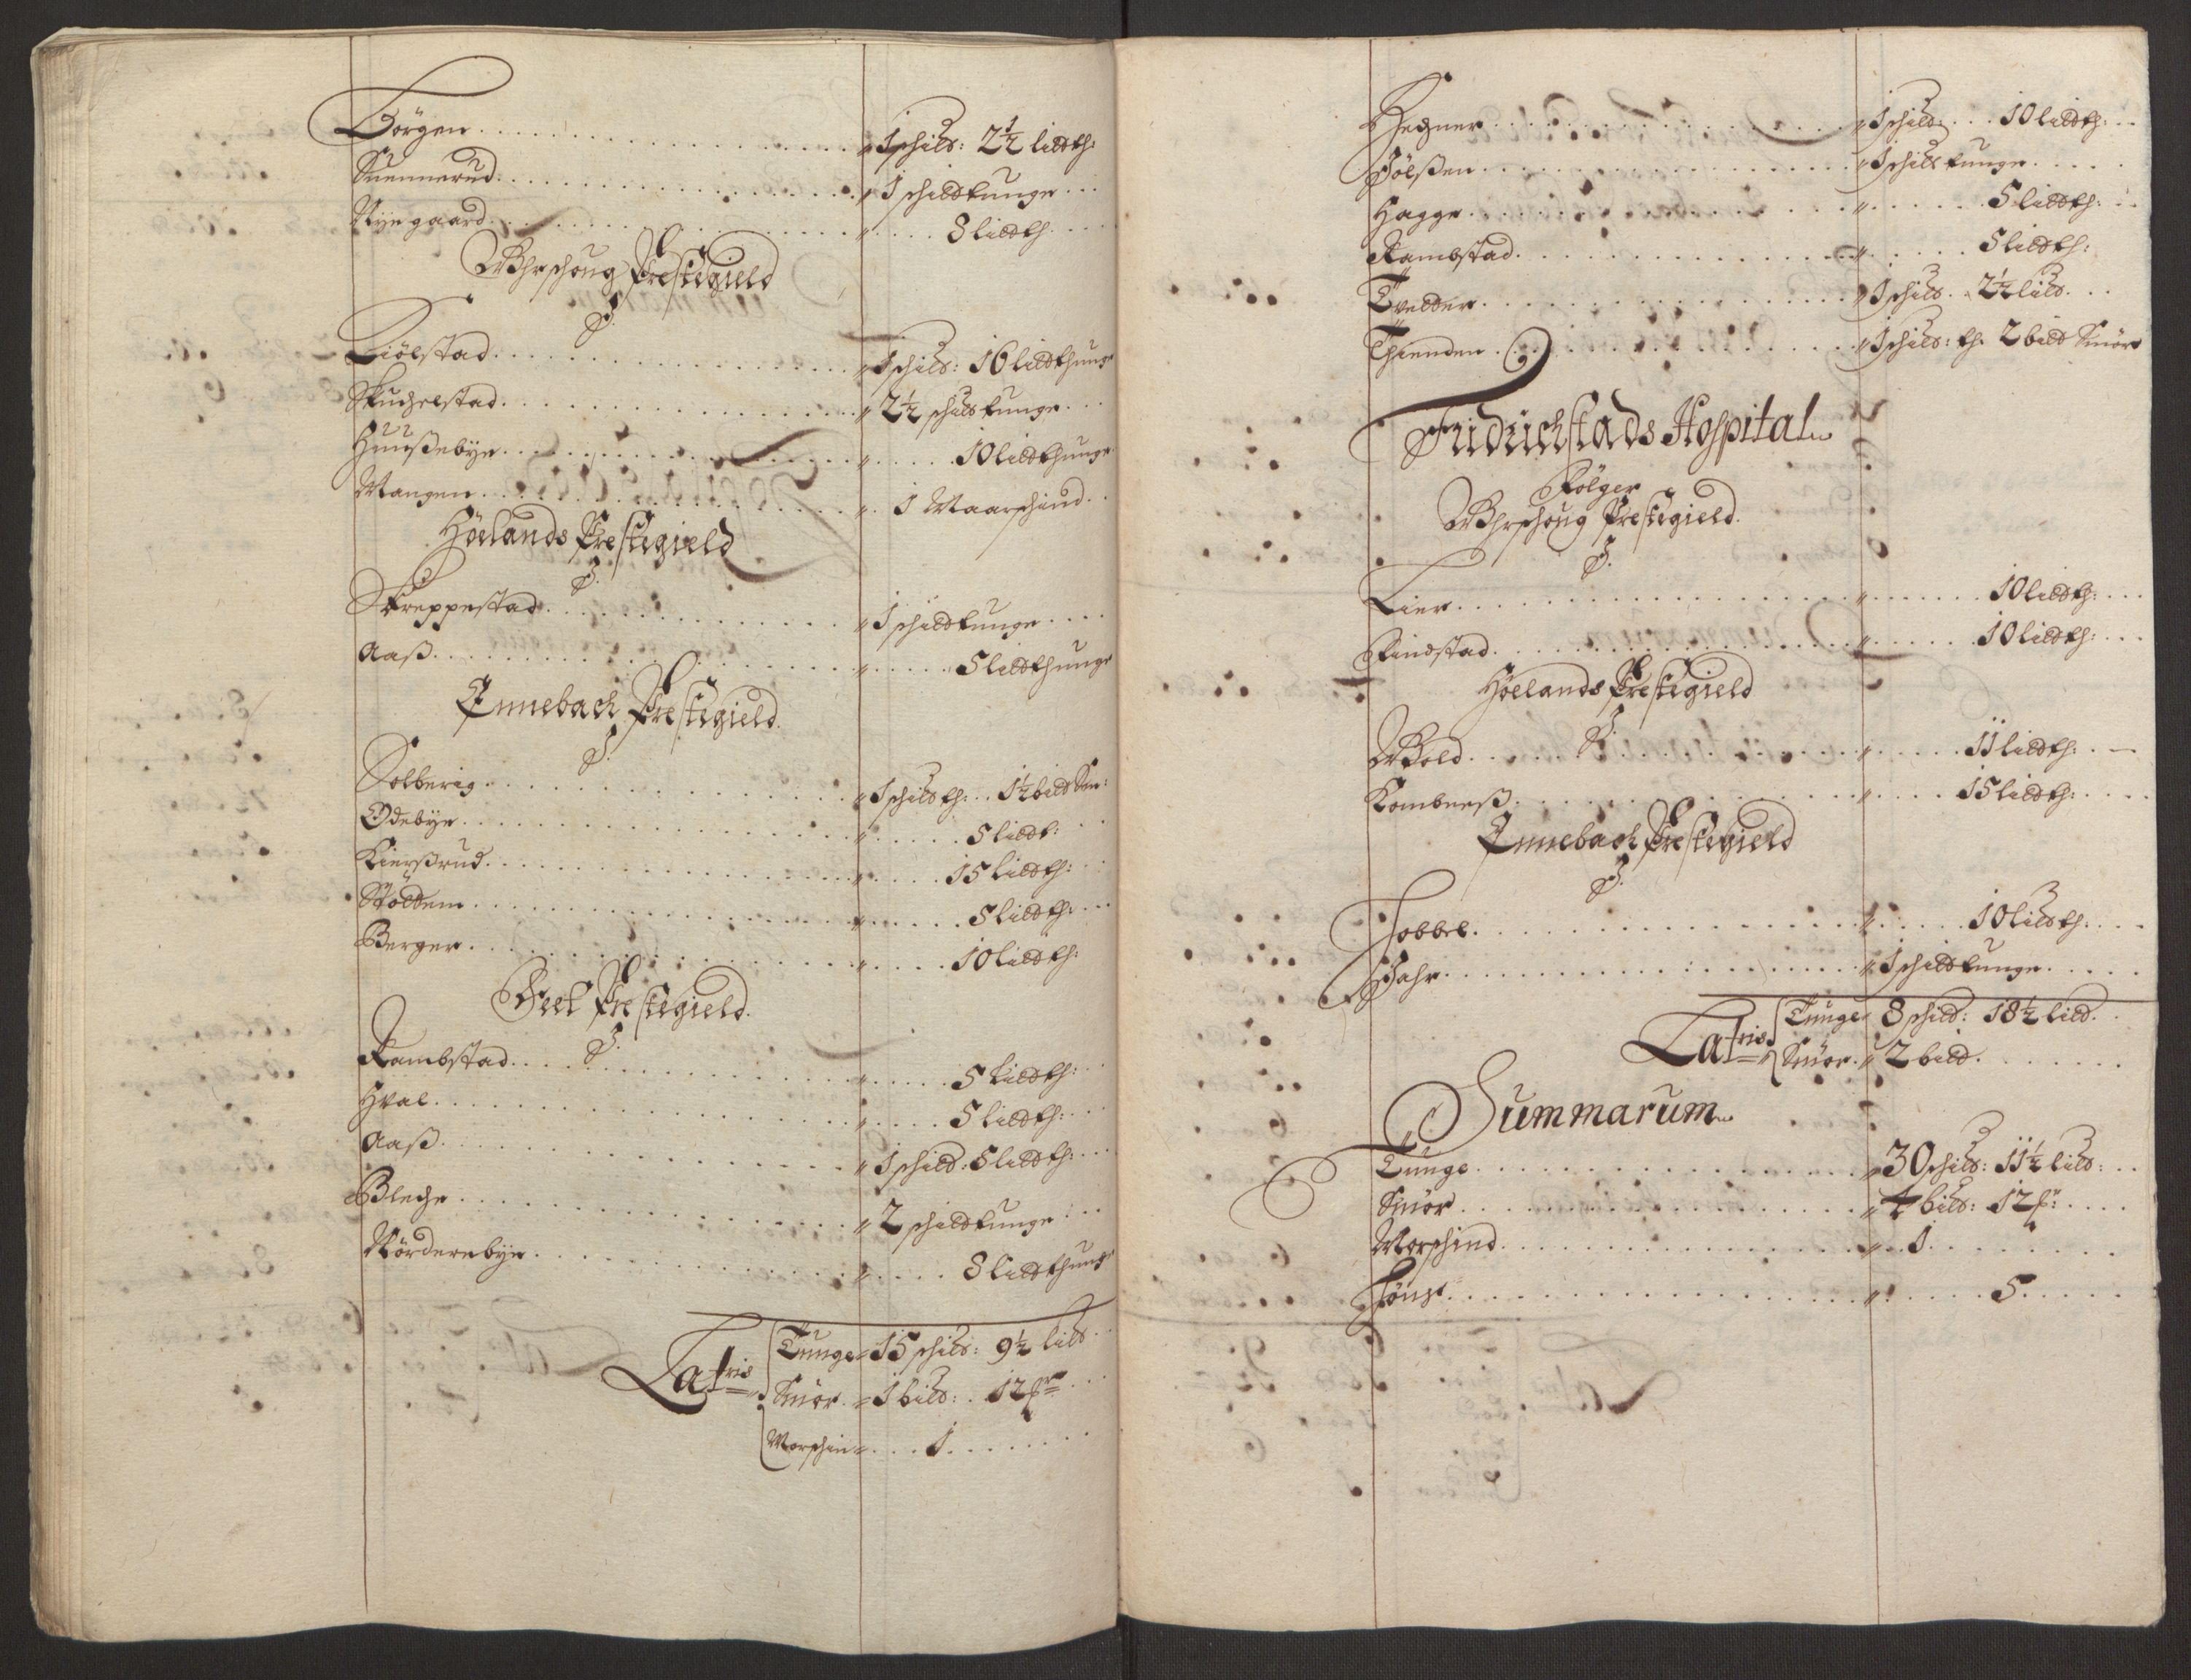 Börgen . . . " 1 schild: 2½ lidth:
Kuennerud . . . " 1 schildtunge
Nyegaard . . . " . . . 8 lidth
Uhrschoug Prestegield
S.
Liölstad . . . " 1 schild: 16 lidthunge
Skuchelstad . . . " 2½ schildtunge
Huußebye . . . " . . . 10 lidthunge
Mangen . . . " 1 Maarschind
Höelands Prestegield
S.
Kreppestad . . . " 1 schildtunge
Aaß . . . " . . . 5 lidthunge
Ennebach Prestegield
S.
Solberig . . . " 1 schild th: 1½ bild Sm:
Ødebye . . . " . . . 5 lidt:
Kierßrud . . . " . . . 15 lidth:
Stöldem . . . " . . . 5 lidth:
Berger . . . " . . . 10 lidth:
Geet Prestegield
S.
Rambstad . . . " . . . 5 lidth:
Hval . . . " . . . 5 lidth:
Aaß . . . " 1 schild: 5 lidth:
Bleche . . . " 2 schildtunge
Nörderebye . . . " . . . 8 lidthunge
Latris Tunge = 15 schild: 9½ lild
Smör = 1 bild: 12 pr
Morschin = . . . 1
Hegner . . . " 1 schild: 10 lidth:
Jölßen . . . " 1 schildtunge
Hagge . . . " . . . 5 lidth:
Rambstad . . . " . . . 5 lidth:
Tvedder . . . " 1 schild 2½ lild
Thienden . . . " 1 schild: th. 2 bild Smör
Fridrichstads Hospital
Følger
Uhrschoug Prestegield.
S.
Lier . . . " . . . 10 lidth:
Findstad . . . " . . . 10 lidth:
Höelands Prestegield
S.
Wold . . . " . . . 11 lidth:
Kombneß . . . " . . . 15 lidth:
Ennebach Prestegield
S.
Tobbel . . . " . . . 10 lidth:
Jahr . . . " 1 schildtunge
Latris Tunge " 8 schild: 18½ lild
Smör " 2 bild
Summarum
Tunge . . . " 30 schild: 11½ lild:
Smör . . . " 4 bild: 12 pr:
Morschind . . . " . 1
Höns . . . " . . . 5